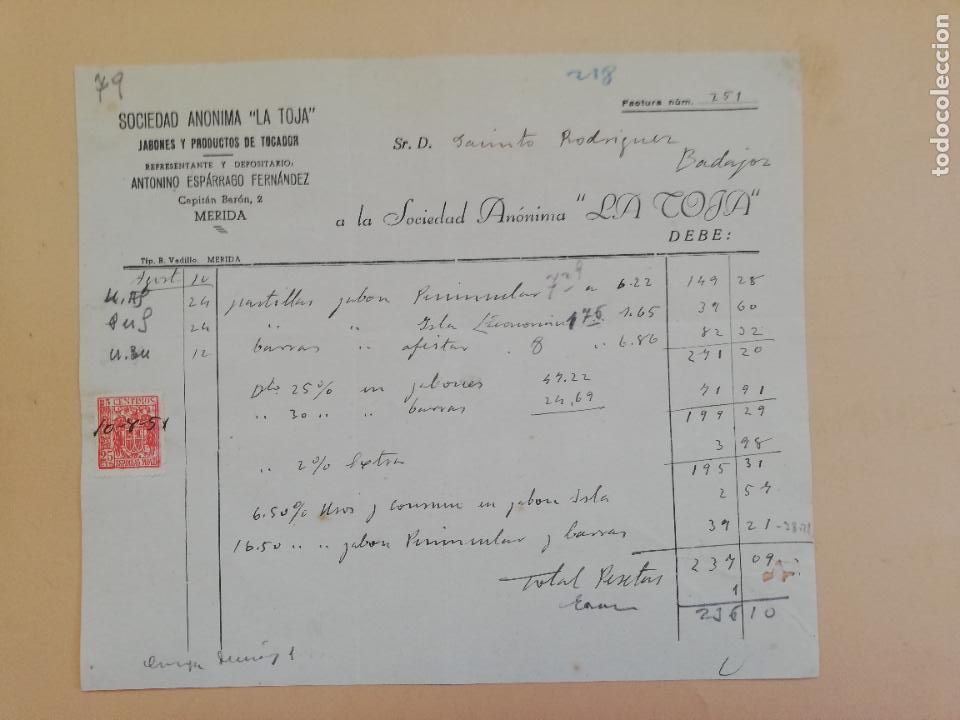 79
218
Factura núm. 251
SOCIEDAD ANONIMA "LA TOJA"
JABONES Y PRODUCTOS DE TOCADOR
REPRESENTANTE Y DEPOSITARIO:
ANTONINO ESPÁRRAGO FERNÁNDEZ
Capitán Barón, 2
MERIDA
Sr. D. Jacinto Rodriguez
Badajoz
a la Sociedad Anónima "LA TOJA"
DEBE:
Tip. B. Vadillo. MERIDA
Agost. 10
24 pastillas jabon Peninsular a 6.22 149 28
24 " " Isla 1.65 39 60
12 barras afeitar 8 " 6.86 82 32
271 20
Dto 25% en jabones 47.22
" 30 " " barras 24,69 71 91
199 29
" 2% Extra 3 98
195 31
6.50% Usos y consumo en jabon Isla 2 57
16.50 " " jabon Peninsular y barras 39 21
Total Pesetas 237 09
1
236 10
25 CENTIMOS
10-8-51
25
todocoleccion